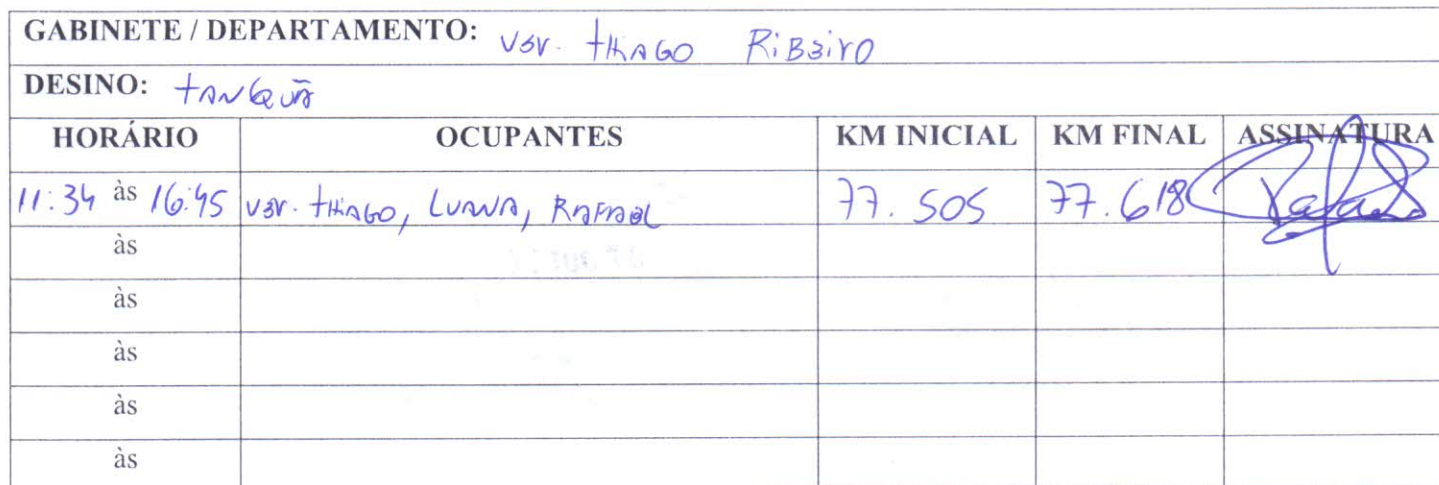 GABINETE / DEPARTAMENTO: Ver. Thiago Ribeiro
DESINO: Tanquã
HORÁRIO OCUPANTES KM INICIAL KM FINAL ASSINATURA
11:34 às 16:45 Ver. Thiago, Luana, Rafael 77.505 77.618 Rafael
às
às
às
às
às